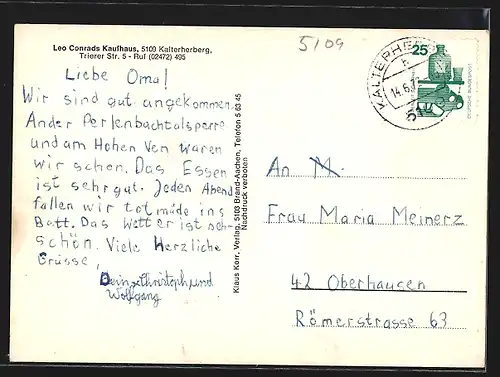 Leo Conrads Kaufhaus, 5109 Kalterherberg,
Trierer Str. 5 - Ruf (02472) 495
5109
Liebe Oma!
Wir sind gut angekommen.
An der Perlenbachtalsperre
und am Hohen Ven waren
wir schon. Das Essen
ist sehr gut. Jeden Abend
fallen wir totmüde ins
Bett. Das Wetter ist seh-
schön. Viele Herzliche
Grüsse,
Deine Christoph und
Wolfgang
Klaus Kerr, Verlag, 5103 Brand-Aachen, Telefon 5 63 45
Nachdruck verboten
KALTERHE
14.6.7
25
DEUTSCHE BUNDESPOST
An M.
Frau Maria Meinerz
42 Oberhausen
Römerstrasse 63